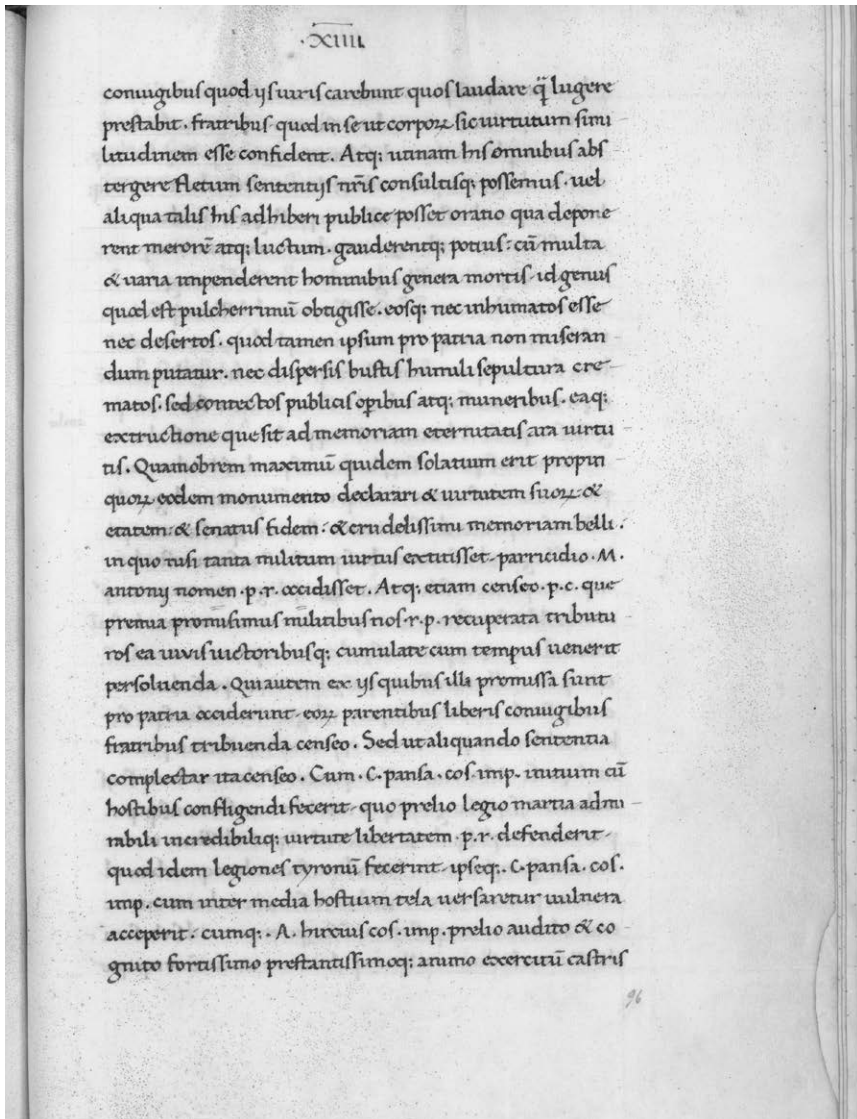 ·XIIII·
coniugibus quod ijs uiris carebunt quos laudare q̃ lugere
prestabit. fratribus quod in se ut corporꝝ sic uirtutum simi
litudinem esse confident. Atq; utinam his omnibus abs
tergere fletum sententijs nr̃is consultisq; possemus. uel
aliqua talis his adhiberi publice posset oratio qua depone
rent merorẽ atq; luctum. gauderentq; potius: cũ multa
& uaria impenderent hominibus genera mortis id genus
quod est pulcherrimũ obtigisse. eosq; nec inhumatos esse
nec desertos. quod tamen ipsum pro patria non miseran
dum putatur. nec dispersis bustis humili sepultura cre
matos. sed contectos publicis oꝑibus atq; muneribus. eaq;
extructione que sit ad memoriam eternitatis ara uirtu
tis. Quamobrem maximũ quidem solatium erit propin
quoꝝ eodem monumento declarari & uirtutem suoꝝ: &
etatem: & senatus fidem: & crudelissimi memoriam belli:
in quo nisi tanta militum uirtus extitisset parricidio. M.
antonij nomen .p.r. occidisset. Atq; etiam censeo .p.c. que
premia promisimus militibus nos .r.p. recuperata tributu
ros ea uiuis uictoribusq; cumulate cum tempus uenerit
persoluenda. Qui autem ex ijs quibus illa promissa sunt
pro patria occiderunt eoꝝ parentibus liberis coniugibus
fratribus tribuenda censeo. Sed ut aliquando sententia
complectar ita censeo. Cum .C. pansa. cos. imp. initium cũ
hostibus confligendi fecerit quo prelio legio martia admi
rabili incredibiliq; uirtute libertatem .p.r. defenderit
quod idem legiones tyronũ fecerint ipseq;. C. pansa. cos.
imp. cum inter media hostium tela uersaretur uulnera
acceperit. cumq;. A. hircius cos. imp. prelio audito & co
gnito fortissimo prestantissimoq; animo exercitũ castris
96